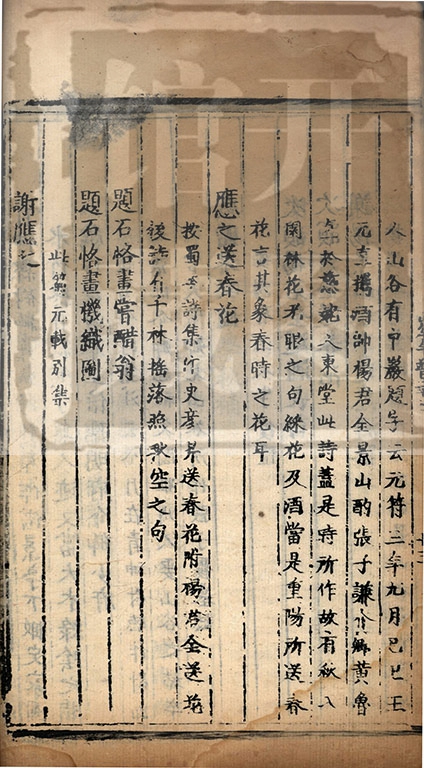 人山谷有中巖題字云元符三年九月己巳王
元直攜酒帥楊君全景山酌張子謙介卿黃魯
直於慈姥之東堂此詩蓋是時所作故有秋入
園林花老眼之句綵花及酒當是重陽所送春
花言其象春時之花耳
應之送春花
按蜀本詩集作史彥昇送春花附楊君全送花
後詩有千林搖落照秋空之句
題石恪畫嘗醋翁
題石恪畫機織圖
此篇元載別集
謝應之